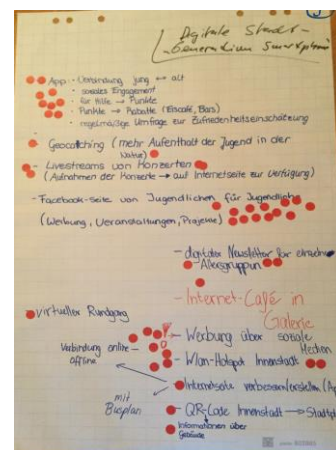 Digitale Stadt -
Generation Smartphone
App: - Verbindung jung ↔ alt
- soziales Engagement
- für Hilfe → Punkte
- Punkte → Rabatte (Eiscafé, Bars)
- regelmäßige Umfrage zur Zufriedenheitseinschätzung
- Geocatching (mehr Aufenthalt der Jugend in der
Natur)
- Livestreams von Konzerten
(Aufnahmen der Konzerte → auf Internetseite zur Verfügung)
- Facebook-Seite von Jugendlichen für Jugendliche
(Werbung, Veranstaltungen, Projekte)
- digitaler Newsletter für einzelne
Altersgruppen
- Internet-Café in
Galerie
virtueller Rundgang
- Werbung über soziale
Medien
Verbindung online -
offline
- Wlan-Hotspot Innenstadt
- Internetseite verbessern/erstellen (Ap
mit
Busplan
- QR-Code Innenstadt → Stadtpl
Informationen über
Gebäude